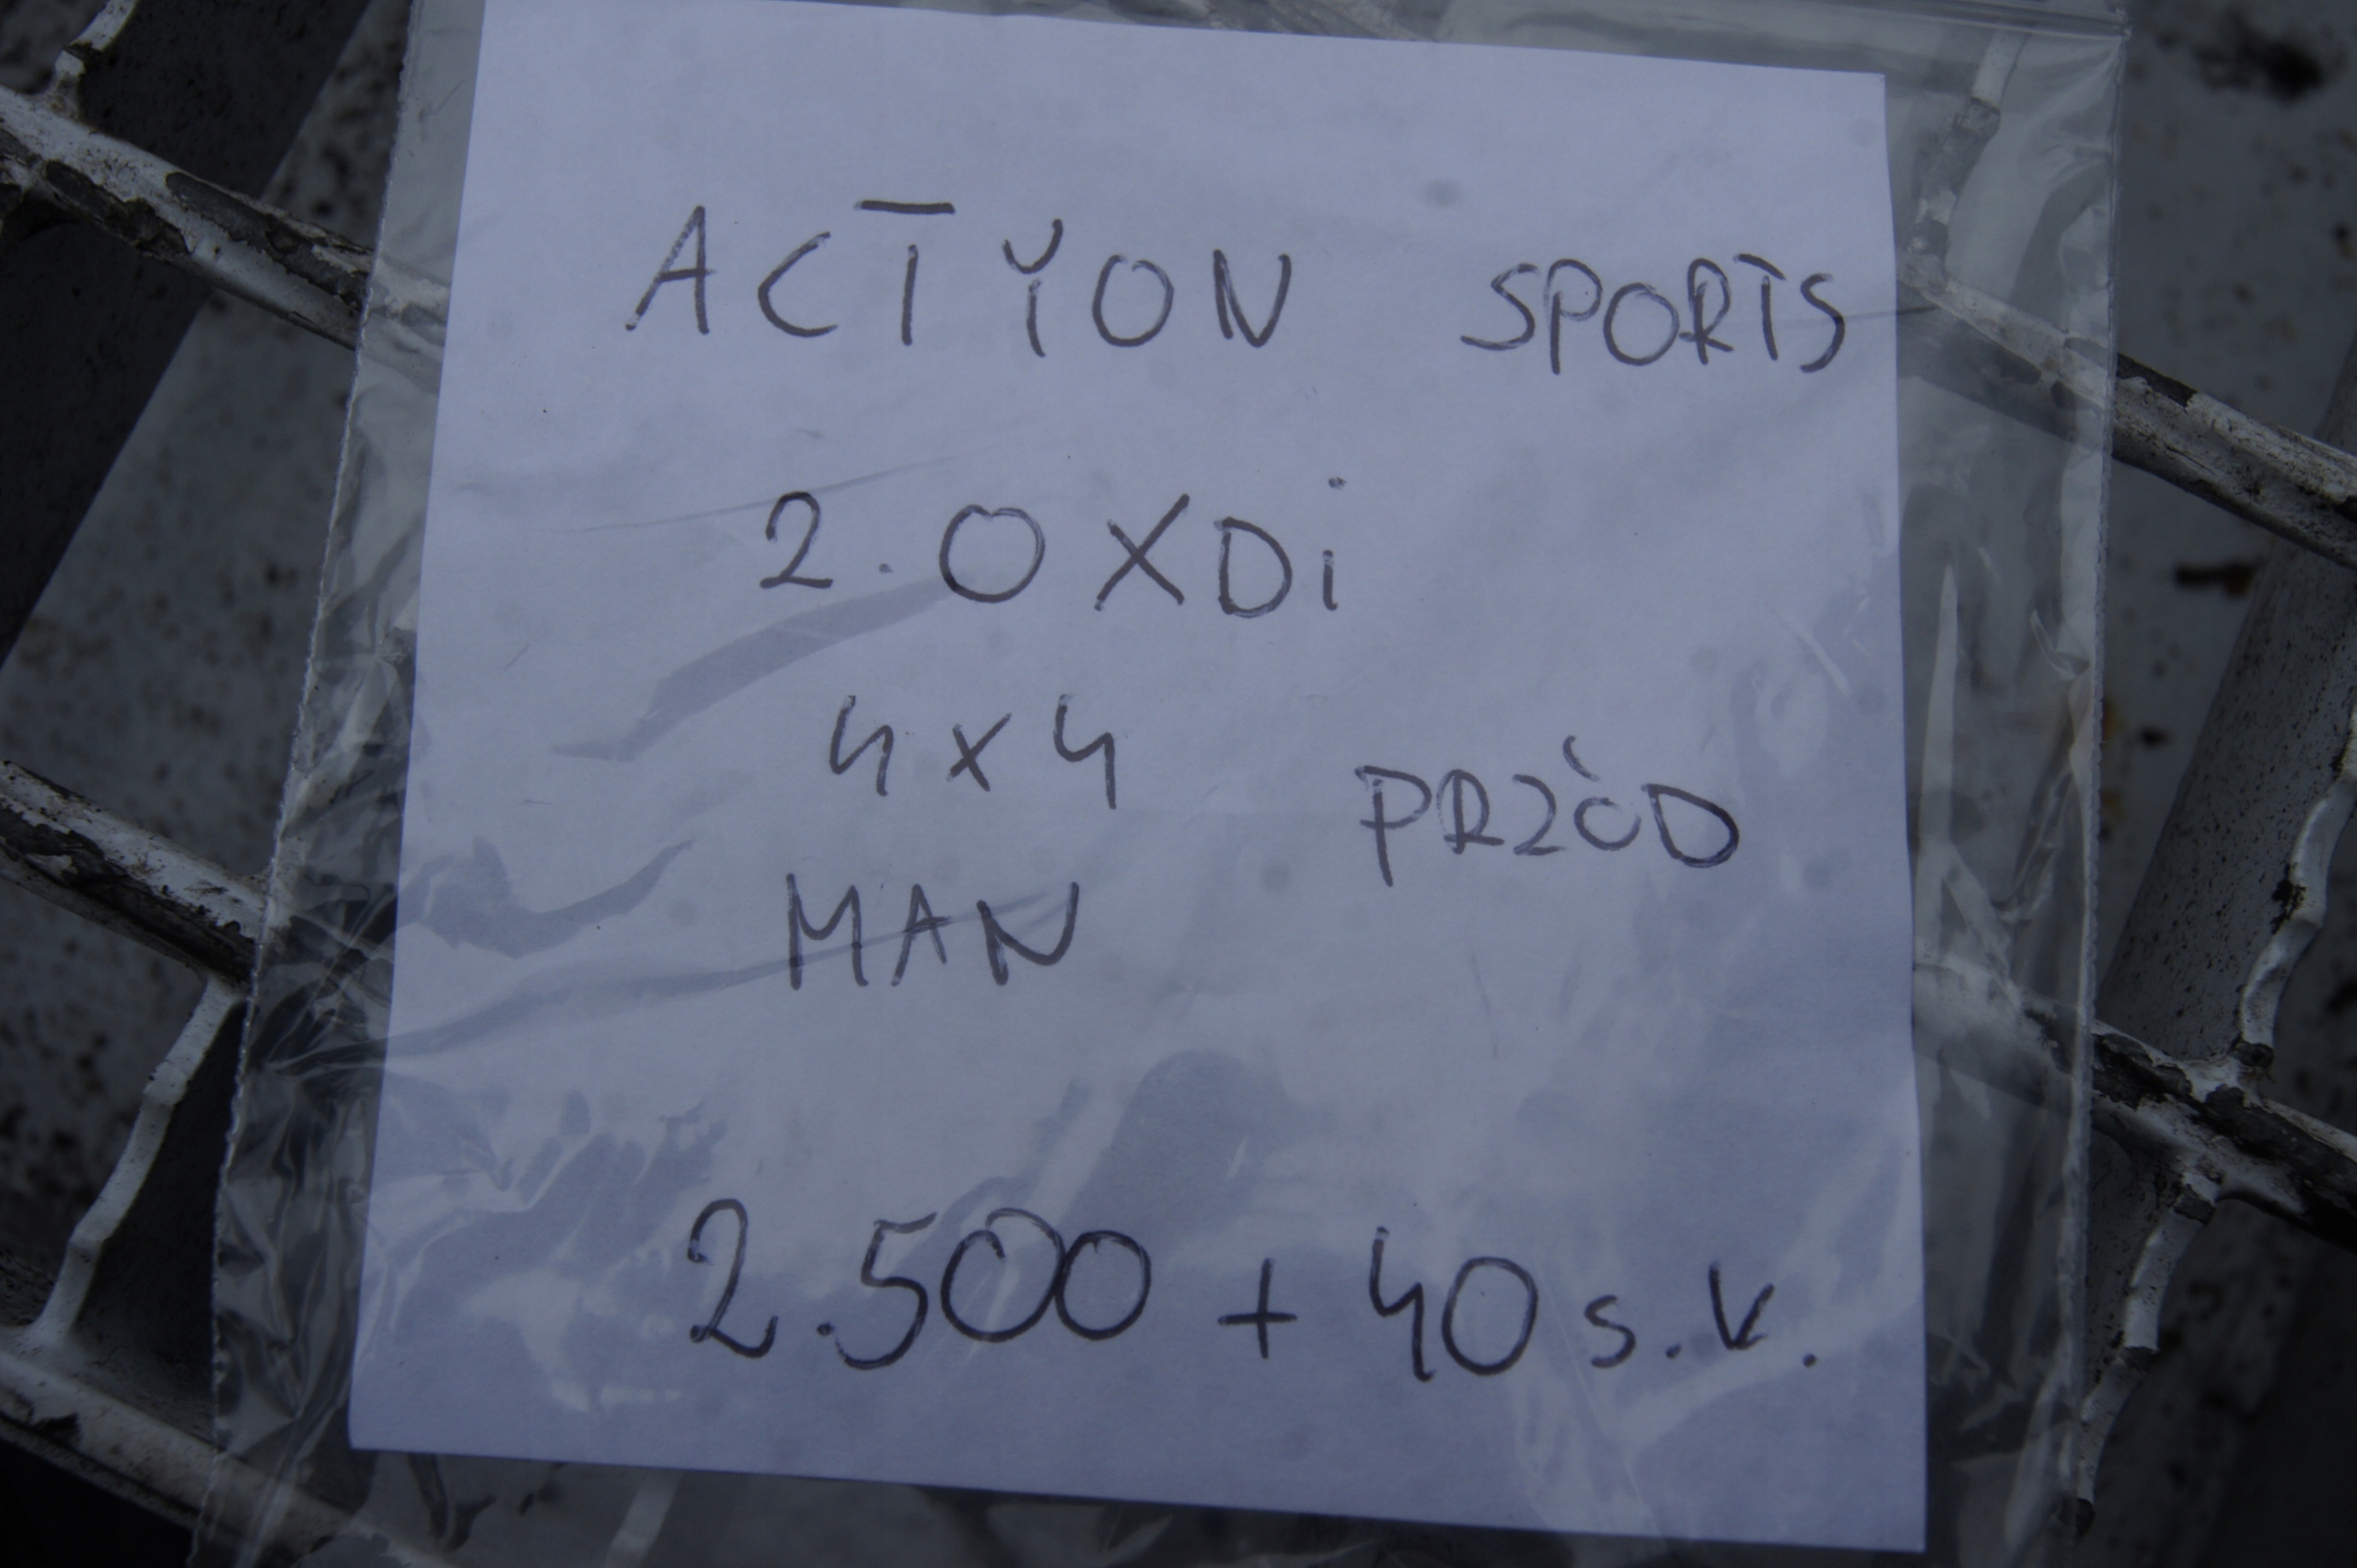 ACTYON SPORTS
2.0 XDi
4x4 PRZÓD
MAN
2.500 + 40 s.v.